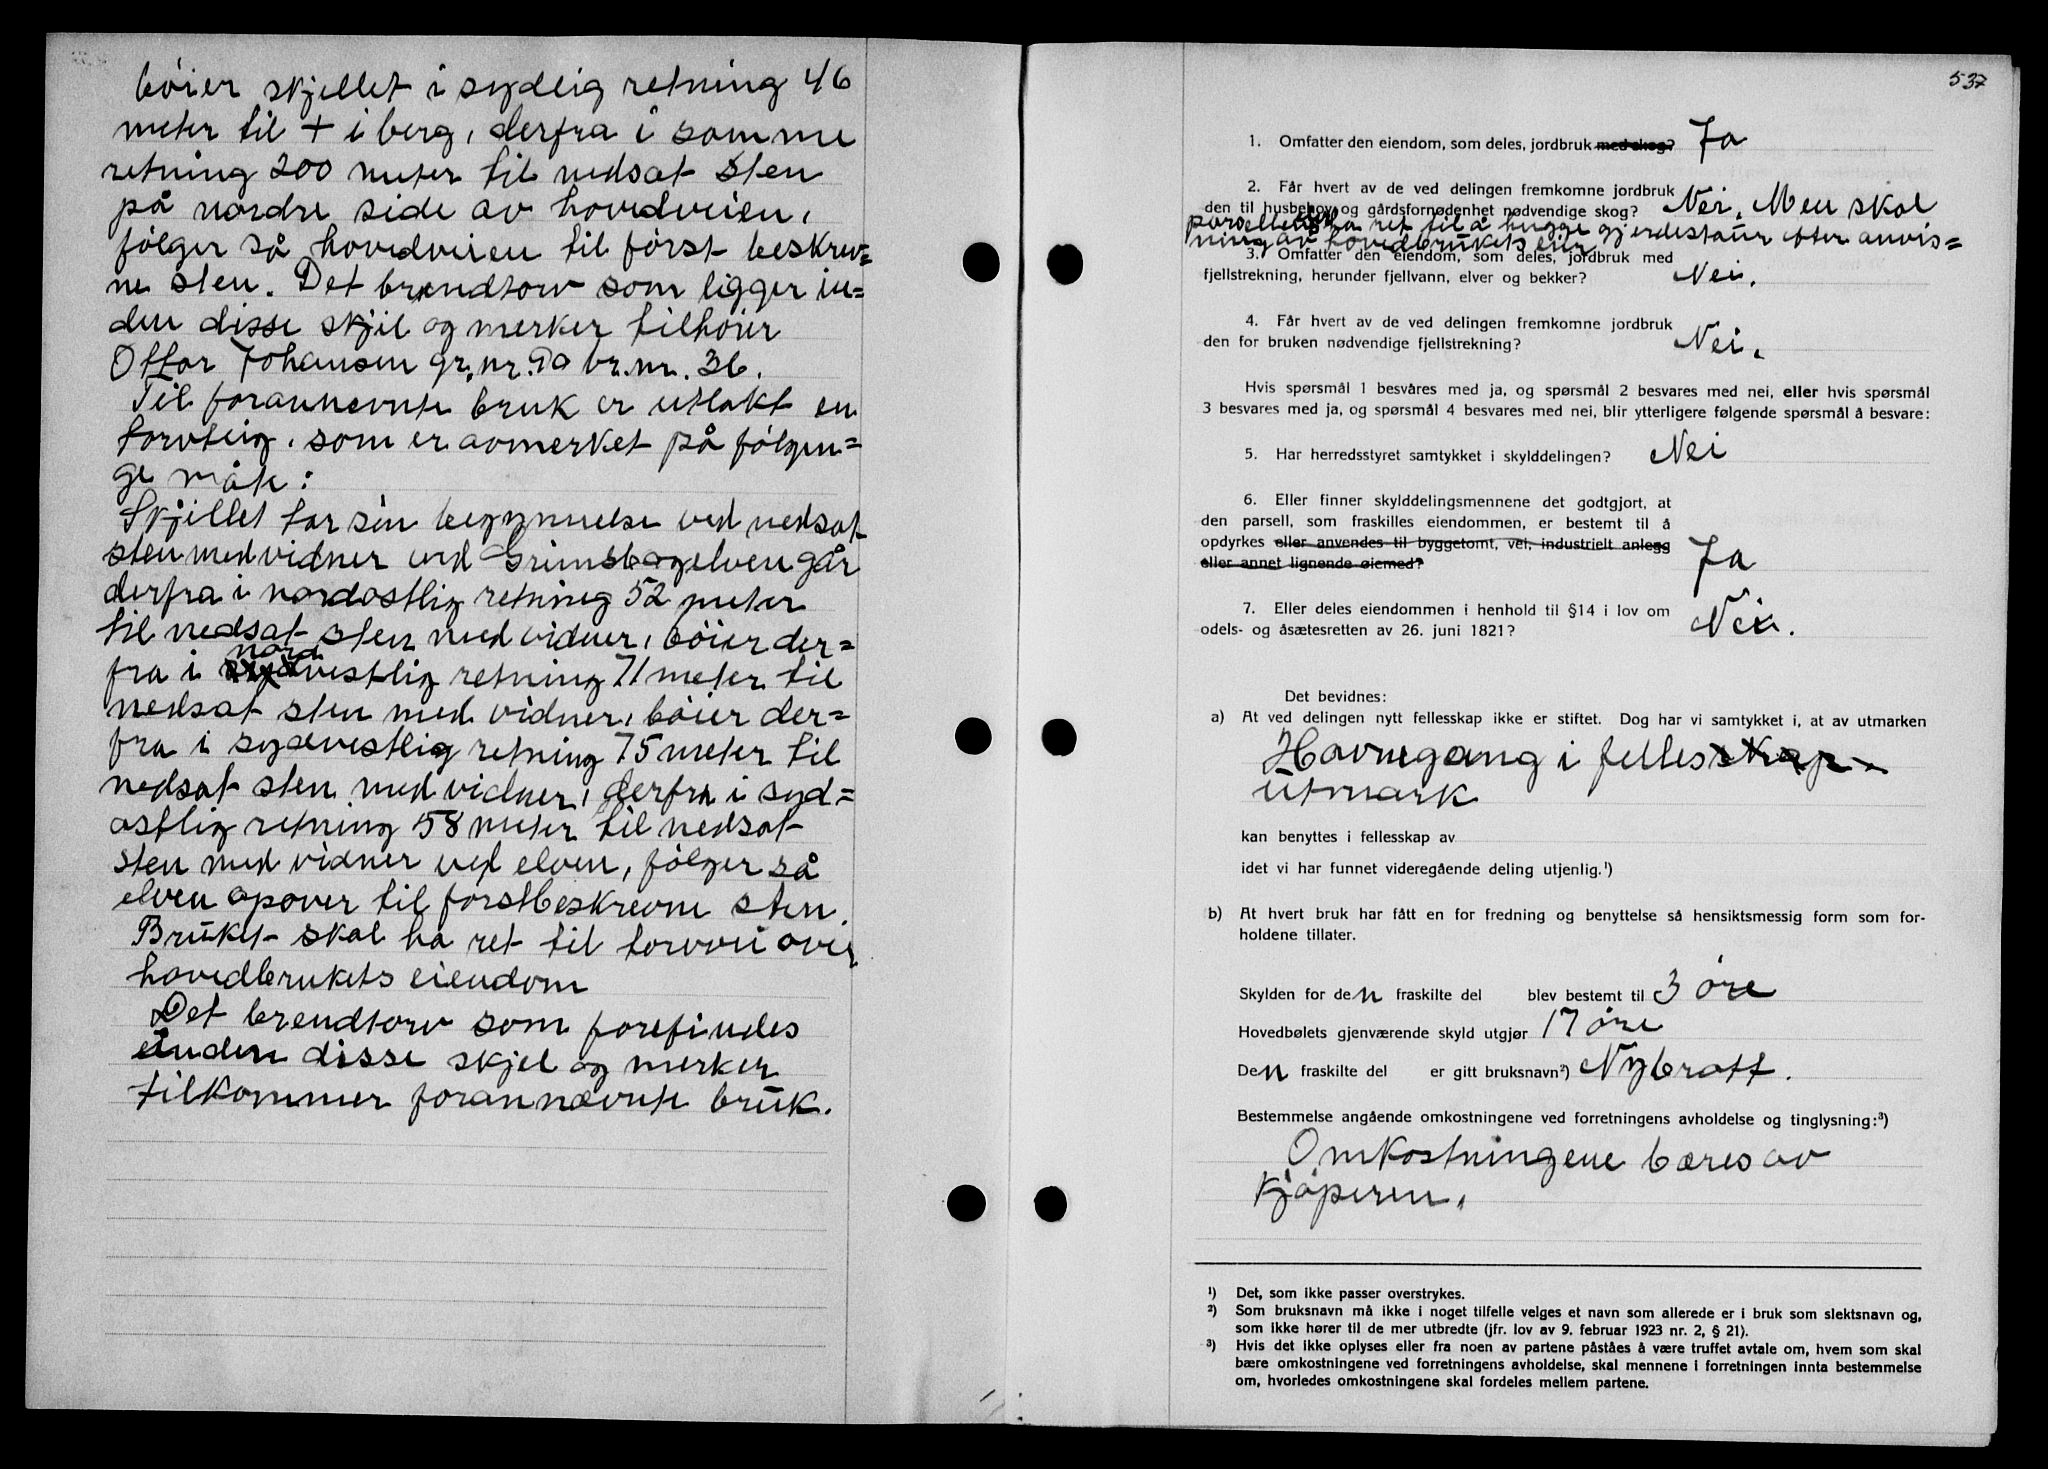 bøier skjellet i sydlig retning 46
meter til + i berg, derfra i samme
retning 200 meter til nedsat sten
på nordre side av hovedveien,
følger så hovedveien til først beskrev=
ne sten. Det brendtorv som ligger in=
den disse skjil og merker tilhører
Ottar Johansen gr.nr. 90 br.nr. 36.
Til forannevnte bruk er utlakt en
torvteig, som er avmerket på følgen=
ge måte:
Skjillet tar sin begynnelse ved nedsat
sten med vidner ved Grimsbogelven går
derfra i nordostlig retning 52 meter
til nedsat sten med vidner, bøier der=
fra i nordvestlig retning 71 meter til
nedsat sten med vidner, bøier der=
fra i sydvestlig retning 75 meter til
nedsat sten med vidner, derfra i syd=
ostlig retning 58 meter til nedsat
sten med vidner ved elven, følger så
elven opover til førstbeskrevne sten.
Bruket skal ha ret til torvvei over
hovedbrukets eiendom
Det brendtorv som forefindes
inden disse skjel og merker
tilkommer forannævnte bruk.
537
1. Omfatter den eiendom, som deles, jordbruk med skog? Ja
2. Får hvert av de ved delingen fremkomne jordbruk
den til husbehov og gårdsfornødenhet nødvendige skog? Nei, Men skal
parsellen ha ret til å hugge gjerdestaur efter anvis=
ning av hovedbrukets eier
3. Omfatter den eiendom, som deles, jordbruk med
fjellstrekning, herunder fjellvann, elver og bekker? Nei.
4. Får hvert av de ved delingen fremkomne jordbruk
den for bruken nødvendige fjellstrekning? Nei.
Hvis spørsmål 1 besvåres med ja, og spørsmål 2 besvares med nei, eller hvis spørsmål
3 besvares med ja, og spørsmål 4 besvares med nei, blir ytterligere følgende spørsmål å besvare:
5. Har herredsstyret samtykket i skylddelingen? Nei
6. Eller finner skylddelingsmennene det godtgjort, at
den parsell, som fraskilles eiendommen, er bestemt til å
opdyrkes eller anvendes til byggetomt, vei, industrielt anlegg
eller annet lignende øiemed? Ja
7. Eller deles eiendommen i henhold til §14 i lov om
odels- og åsætesretten av 26. juni 1821? Nei.
Det bevidnes:
a) At ved delingen nytt fellesskap ikke er stiftet. Dog har vi samtykket i, at av utmarken
Havnegang i fellesskap
utmark
kan benyttes i fellesskap av
idet vi har funnet videregående deling utjenlig.¹)
b) At hvert bruk har fått en for fredning og benyttelse så hensiktsmessig form som for-
holdene tillater.
Skylden for den fraskilte del blev bestemt til 3 øre
Hovedbølets gjenværende skyld utgjør 17 øre
Den fraskilte del er gitt bruksnavn²) Nybrott.
Bestemmelse angående omkostningene ved forretningens avholdelse og tinglysning:³)
Omkostningene bæres av
kjøperen.
¹) Det, som ikke passer overstrykes.
²) Som bruksnavn må ikke i noget tilfelle velges et navn som allerede er i bruk som slektsnavn og,
som ikke hører til de mer utbredte (jfr. lov av 9. februar 1923 nr. 2, § 21).
³) Hvis det ikke oplyses eller fra noen av partene påståes å være truffet avtale om, hvem som skal
bære omkostningene ved forretningens avholdelse, skal mennene i forretningen innta bestemmelse
om, hvorledes omkostningene skal fordeles mellem partene.